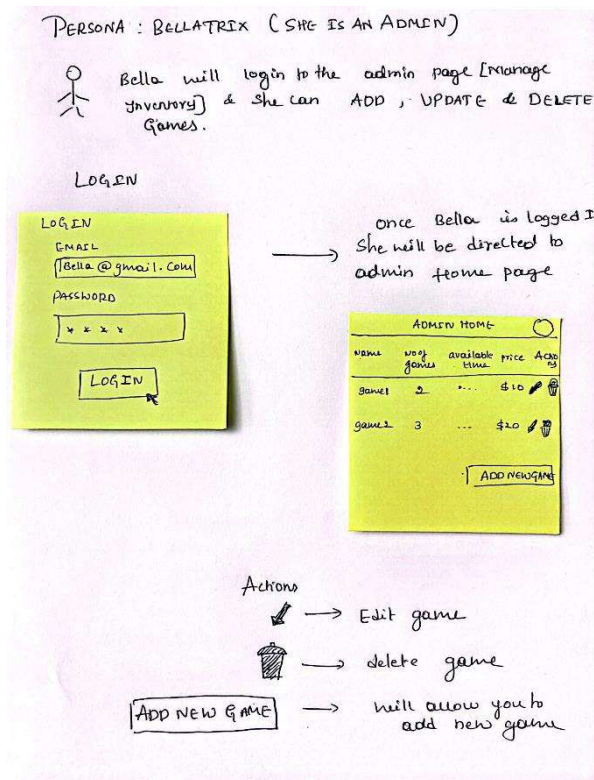 PERSONA : BELLATRIX (SHE IS AN ADMIN)
Bella will login to the admin page [Manage
Inventory] & she can ADD, UPDATE & DELETE
Games.
LOGIN
LOGIN
EMAIL
Bella@gmail.com
PASSWORD
* * * *
LOGIN
once Bella is logged I
She will be directed to
admin Home page
ADMIN HOME
Name No of games available time price Actions
game1 2 ... $10
game2 3 ... $20
ADD NEW GAME
Actions
→ Edit game
→ delete game
ADD NEW GAME → will allow you to
add new game